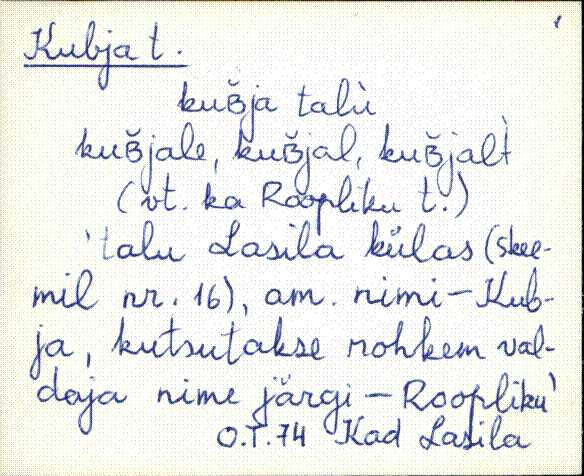 Kubja t.
kuʙ̆ja talù
kuʙ̆jale, kuʙ̆jal, kuʙ̆jalt̀
(vt. ka Roopliku t.)
'talu Lasila külas (skee-
mil nr. 16), am. nimi – Kub-
ja, kutsutakse rohkem val-
daja nime järgi – Roopliku'
O.T. 74 Kad Lasila